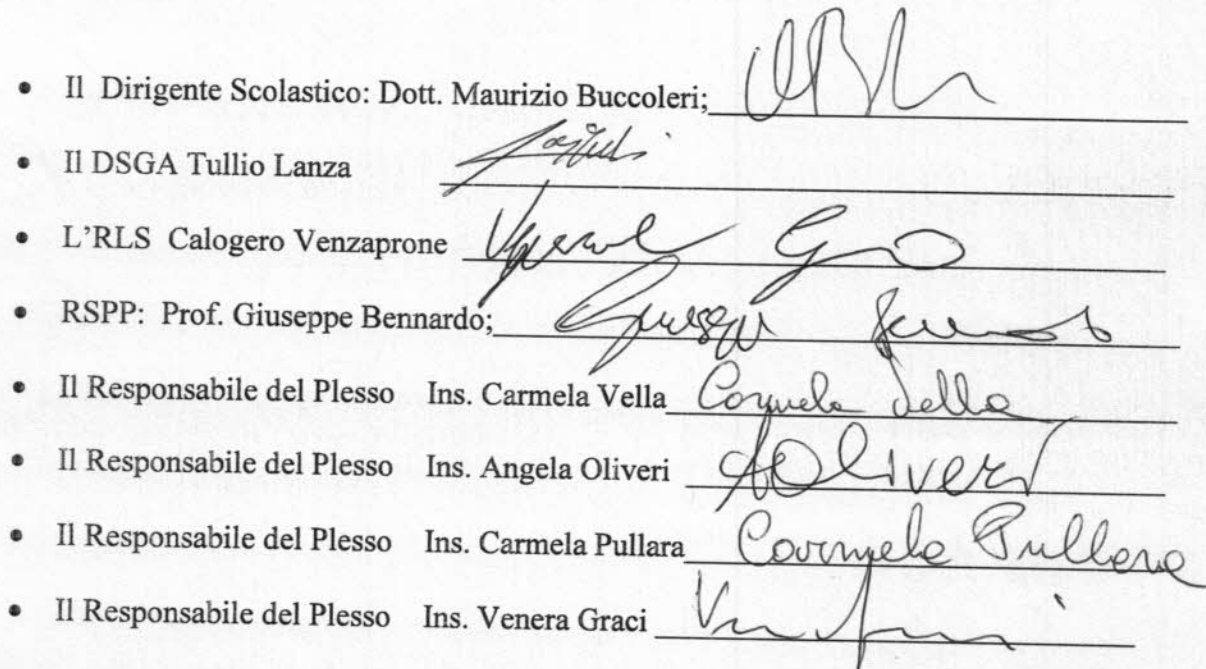 • Il Dirigente Scolastico: Dott. Maurizio Buccoleri;
• Il DSGA Tullio Lanza
• L'RLS Calogero Venzaprone
• RSPP: Prof. Giuseppe Bennardo; Giuseppe
• Il Responsabile del Plesso Ins. Carmela Vella Carmela Vella
• Il Responsabile del Plesso Ins. Angela Oliveri AOliveri
• Il Responsabile del Plesso Ins. Carmela Pullara Carmela Pullara
• Il Responsabile del Plesso Ins. Venera Graci